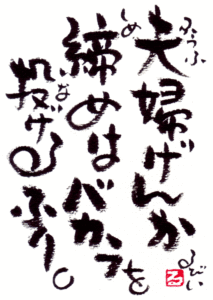 夫婦げんか
締めはバカラを
投げるふり。
ふうふ
しめ
なげ
るびい
る